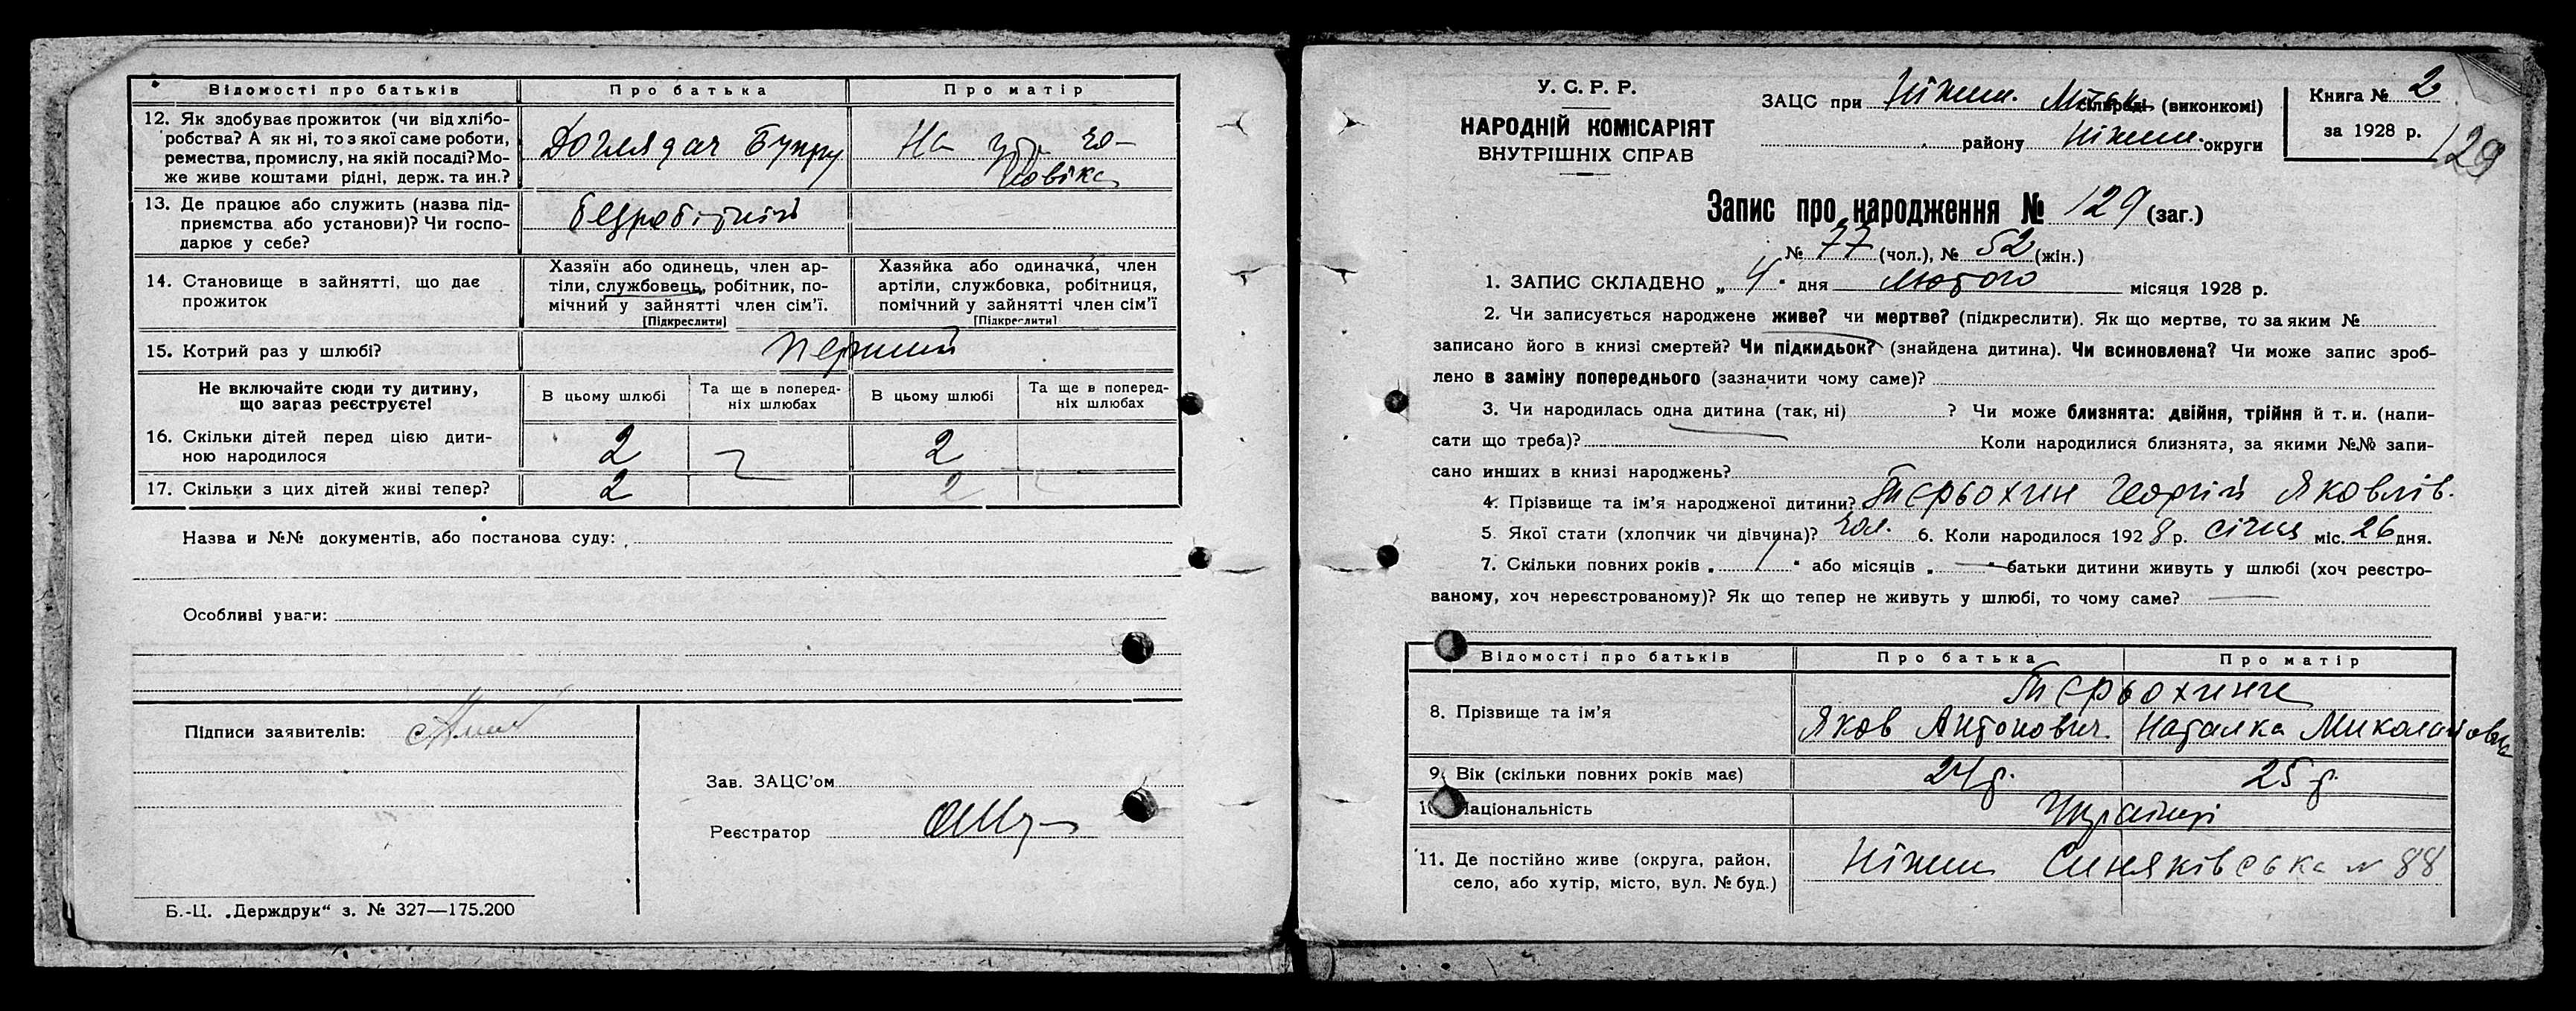 Відомості про батьків Про батька Про матір
12. Як здобуває прожиток (чи від хлібо-
робства? А як ні, то з якої саме роботи,
ремества, промислу, на якій посаді? Мо-
же живе коштами рідні, держ. та ин.?
Доглядач Бупру
На утр. чо-
ловіка
13. Де працює або служить (назва під-
приємства або установи)? Чи госпо-
дарює у себе?
безробітній
14. Становище в зайнятті, що дає
прожиток
Хазяїн або одинець, член ар-
тіли, службовець, робітник, по-
мічний у зайнятті член сім'ї.
[Підкреслити]
Хазяйка або одиначка, член
артіли, службовка, робітниця,
помічний у зайнятті член сім'ї
[Підкреслити]
15. Котрий раз у шлюбі? перший
Не включайте сюди ту дитину,
що загаз реєструєте!
В цьому шлюбі
Та ще в поперед-
ніх шлюбах
В цьому шлюбі
Та ще в поперед-
ніх шлюбах
16. Скільки дітей перед цією дити-
ною народилося
2 2
17. Скільки з цих дітей живі тепер? 2 2
Назва и №№ документів, або постанова суду:
Особливі уваги:
Підписи заявителів:
Зав. ЗАЦС'ом
Реєстратор
Б.-Ц. „Держдрук“ з. № 327—175.200
У. С. Р. Р.
НАРОДНІЙ КОМІСАРІЯТ
ВНУТРІШНІХ СПРАВ
ЗАЦС при Ніжин. Міськ сільраді (виконкомі)
району Ніжин. округи
Книга № 2
за 1928 р.
129
Запис про народження № 129 (заг.)
№ 77 (чол.), № 52 (жін.)
1. ЗАПИС СКЛАДЕНО „ 4 “ дня Лютого місяця 1928 р.
2. Чи записується народжене живе? чи мертве? (підкреслити). Як що мертве, то за яким №
записано його в книзі смертей? Чи підкидьок? (знайдена дитина). Чи всиновлена? Чи може запис зроб-
лено в заміну попереднього (зазначити чому саме)?
3. Чи народилась одна дитина (так, ні) ? Чи може близнята: двійня, трійня й т. и. (напи-
сати що треба)? Коли народилися близнята, за якими №№ запи-
сано инших в книзі народжень?
4. Прізвище та ім'я народженої дитини? Терьохин Георгій Яковлів.
5. Якої стати (хлопчик чи дівчина)? чол. 6. Коли народилося 1928 р. січня міс. 26 дня.
7. Скільки повних років „ “ або місяців „ “ батьки дитини живуть у шлюбі (хоч реєстро-
ваному, хоч нереєстрованому)? Як що тепер не живуть у шлюбі, то чому саме?
Відомості про батьків Про батька Про матір
Терьохини
8. Прізвище та ім'я Яков Антонович. Наталка Миколаєвна
9. Вік (скільки повних років має) 24 р. 25 р.
10. Національність Українці
11. Де постійно живе (округа, район,
село, або хутір, місто, вул. № буд.)
Ніжин Синяківська № 88